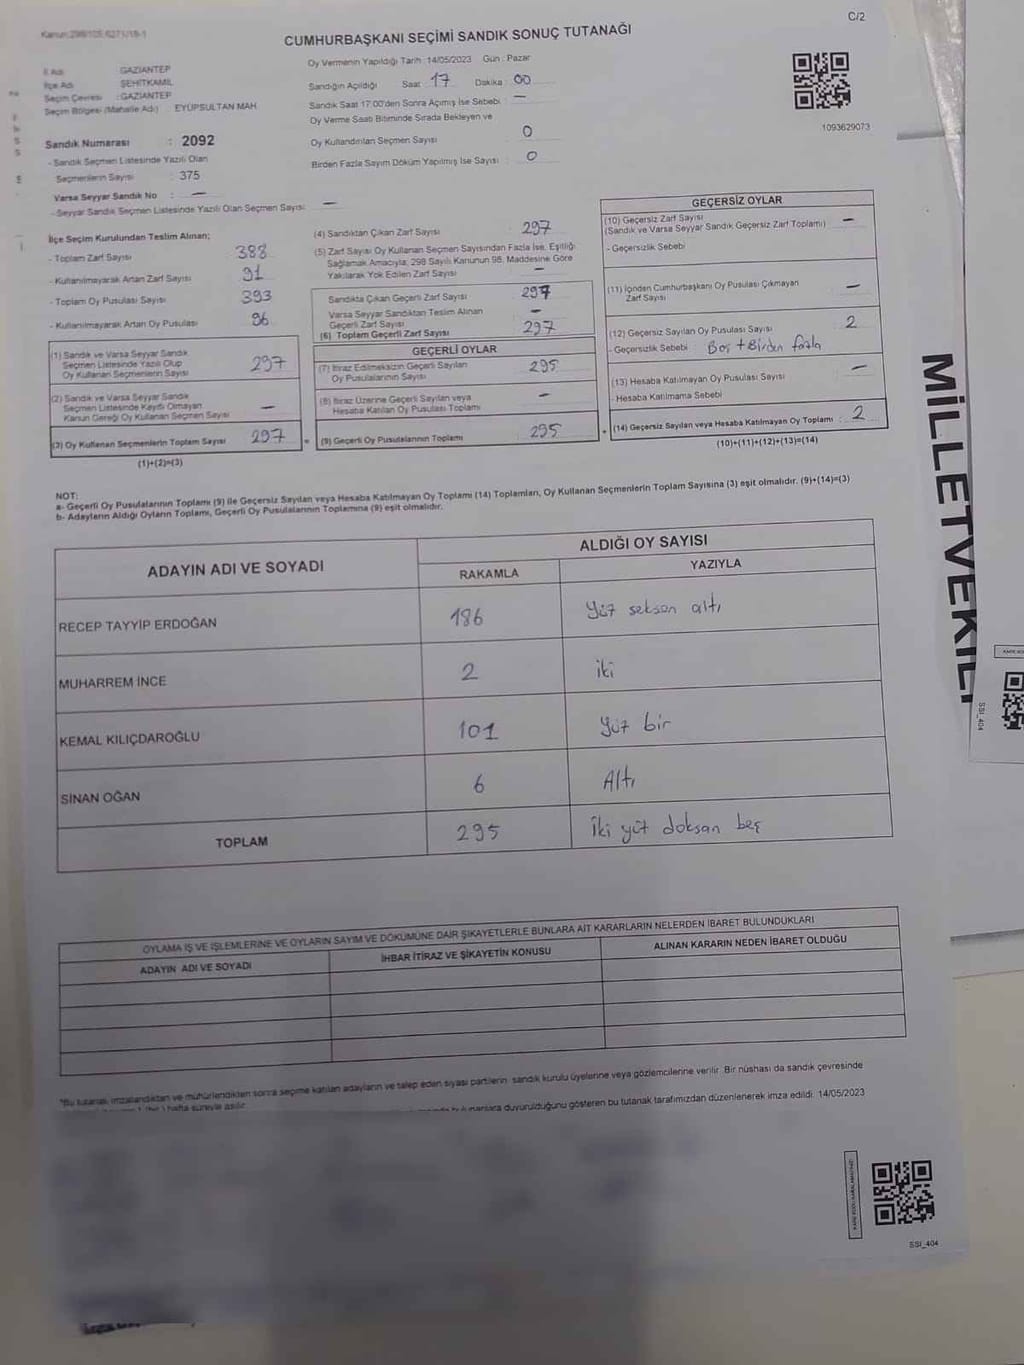 Kanun:298/105 6271/18-1
C/2
CUMHURBAŞKANI SEÇİMİ SANDIK SONUÇ TUTANAĞI
İl Adı GAZİANTEP
İlçe Adı ŞEHİTKAMİL
Seçim Çevresi : GAZİANTEP
Seçim Bölgesi (Mahalle Adı) EYÜPSULTAN MAH.
Sandık Numarası : 2092
- Sandık Seçmen Listesinde Yazılı Olan
Seçmenlerin Sayısı : 375
Varsa Seyyar Sandık No : —
- Seyyar Sandık Seçmen Listesinde Yazılı Olan Seçmen Sayısı —
Oy Vermenin Yapıldığı Tarih : 14/05/2023 Gün : Pazar
Sandığın Açıldığı Saat : 17 Dakika : 00
Sandık Saat 17:00'den Sonra Açılmış İse Sebebi : —
Oy Verme Saati Bitiminde Sırada Bekleyen ve
Oy Kullandırılan Seçmen Sayısı 0
Birden Fazla Sayım Döküm Yapılmış İse Sayısı : 0
1093629073
İlçe Seçim Kurulundan Teslim Alınan;
- Toplam Zarf Sayısı 388
- Kullanılmayarak Artan Zarf Sayısı 91
- Toplam Oy Pusulası Sayısı 393
- Kullanılmayarak Artan Oy Pusulası 96
(1) Sandık ve Varsa Seyyar Sandık
Seçmen Listesinde Yazılı Olup
Oy Kullanan Seçmenlerin Sayısı 297
(2) Sandık ve Varsa Seyyar Sandık
Seçmen Listesinde Kayıtlı Olmayan
Kanun Gereği Oy Kullanan Seçmen Sayısı —
(3) Oy Kullanan Seçmenlerin Toplam Sayısı 297
(1)+(2)=(3)
(4) Sandıktan Çıkan Zarf Sayısı 297
(5) Zarf Sayısı Oy Kullanan Seçmen Sayısından Fazla İse, Eşitliği
Sağlamak Amacıyla, 298 Sayılı Kanunun 98. Maddesine Göre
Yakılarak Yok Edilen Zarf Sayısı —
Sandıkta Çıkan Geçerli Zarf Sayısı 297
Varsa Seyyar Sandıktan Teslim Alınan
Geçerli Zarf Sayısı —
(6) Toplam Geçerli Zarf Sayısı 297
GEÇERLİ OYLAR
(7) İtiraz Edilmeksizin Geçerli Sayılan
Oy Pusulalarının Sayısı 295
(8) İtiraz Üzerine Geçerli Sayılan veya
Hesaba Katılan Oy Pusulası Toplamı —
= (9) Geçerli Oy Pusulalarının Toplamı 295
GEÇERSİZ OYLAR
(10) Geçersiz Zarf Sayısı
(Sandık ve Varsa Seyyar Sandık Geçersiz Zarf Toplamı) —
- Geçersizlik Sebebi
(11) İçinden Cumhurbaşkanı Oy Pusulası Çıkmayan
Zarf Sayısı —
(12) Geçersiz Sayılan Oy Pusulası Sayısı 2
- Geçersizlik Sebebi Boş + Birden fazla
(13) Hesaba Katılmayan Oy Pusulası Sayısı —
- Hesaba Katılmama Sebebi
+ (14) Geçersiz Sayılan veya Hesaba Katılmayan Oy Toplamı : 2
(10)+(11)+(12)+(13)=(14)
NOT:
a- Geçerli Oy Pusulalarının Toplamı (9) ile Geçersiz Sayılan veya Hesaba Katılmayan Oy Toplamı (14) Toplamları, Oy Kullanan Seçmenlerin Toplam Sayısına (3) eşit olmalıdır. (9)+(14)=(3)
b- Adayların Aldığı Oyların Toplamı, Geçerli Oy Pusulalarının Toplamına (9) eşit olmalıdır.
ADAYIN ADI VE SOYADI
ALDIĞI OY SAYISI
RAKAMLA YAZIYLA
RECEP TAYYİP ERDOĞAN 186 Yüz seksan altı
MUHARREM İNCE 2 iki
KEMAL KILIÇDAROĞLU 101 Yüz bir
SİNAN OĞAN 6 Altı
TOPLAM 295 İki yüz doksan beş
OYLAMA İŞ VE İŞLEMLERİNE VE OYLARIN SAYIM VE DÖKÜMÜNE DAİR ŞİKAYETLERLE BUNLARA AİT KARARLARIN NELERDEN İBARET BULUNDUKLARI
ADAYIN ADI VE SOYADI İHBAR İTİRAZ VE ŞİKAYETİN KONUSU ALINAN KARARIN NEDEN İBARET OLDUĞU
*Bu tutanak imzalandıktan ve mühürlendikten sonra seçime katılan adayların ve talep eden siyasi partilerin sandık kurulu üyelerine veya gözlemcilerine verilir. Bir nüshası da sandık çevresinde
hafta süreyle asılır.
duyurulduğunu gösteren bu tutanak tarafımızdan düzenlenerek imza edildi. 14/05/2023
SSI_404
MİLLETVEKİLİ
SSI_404